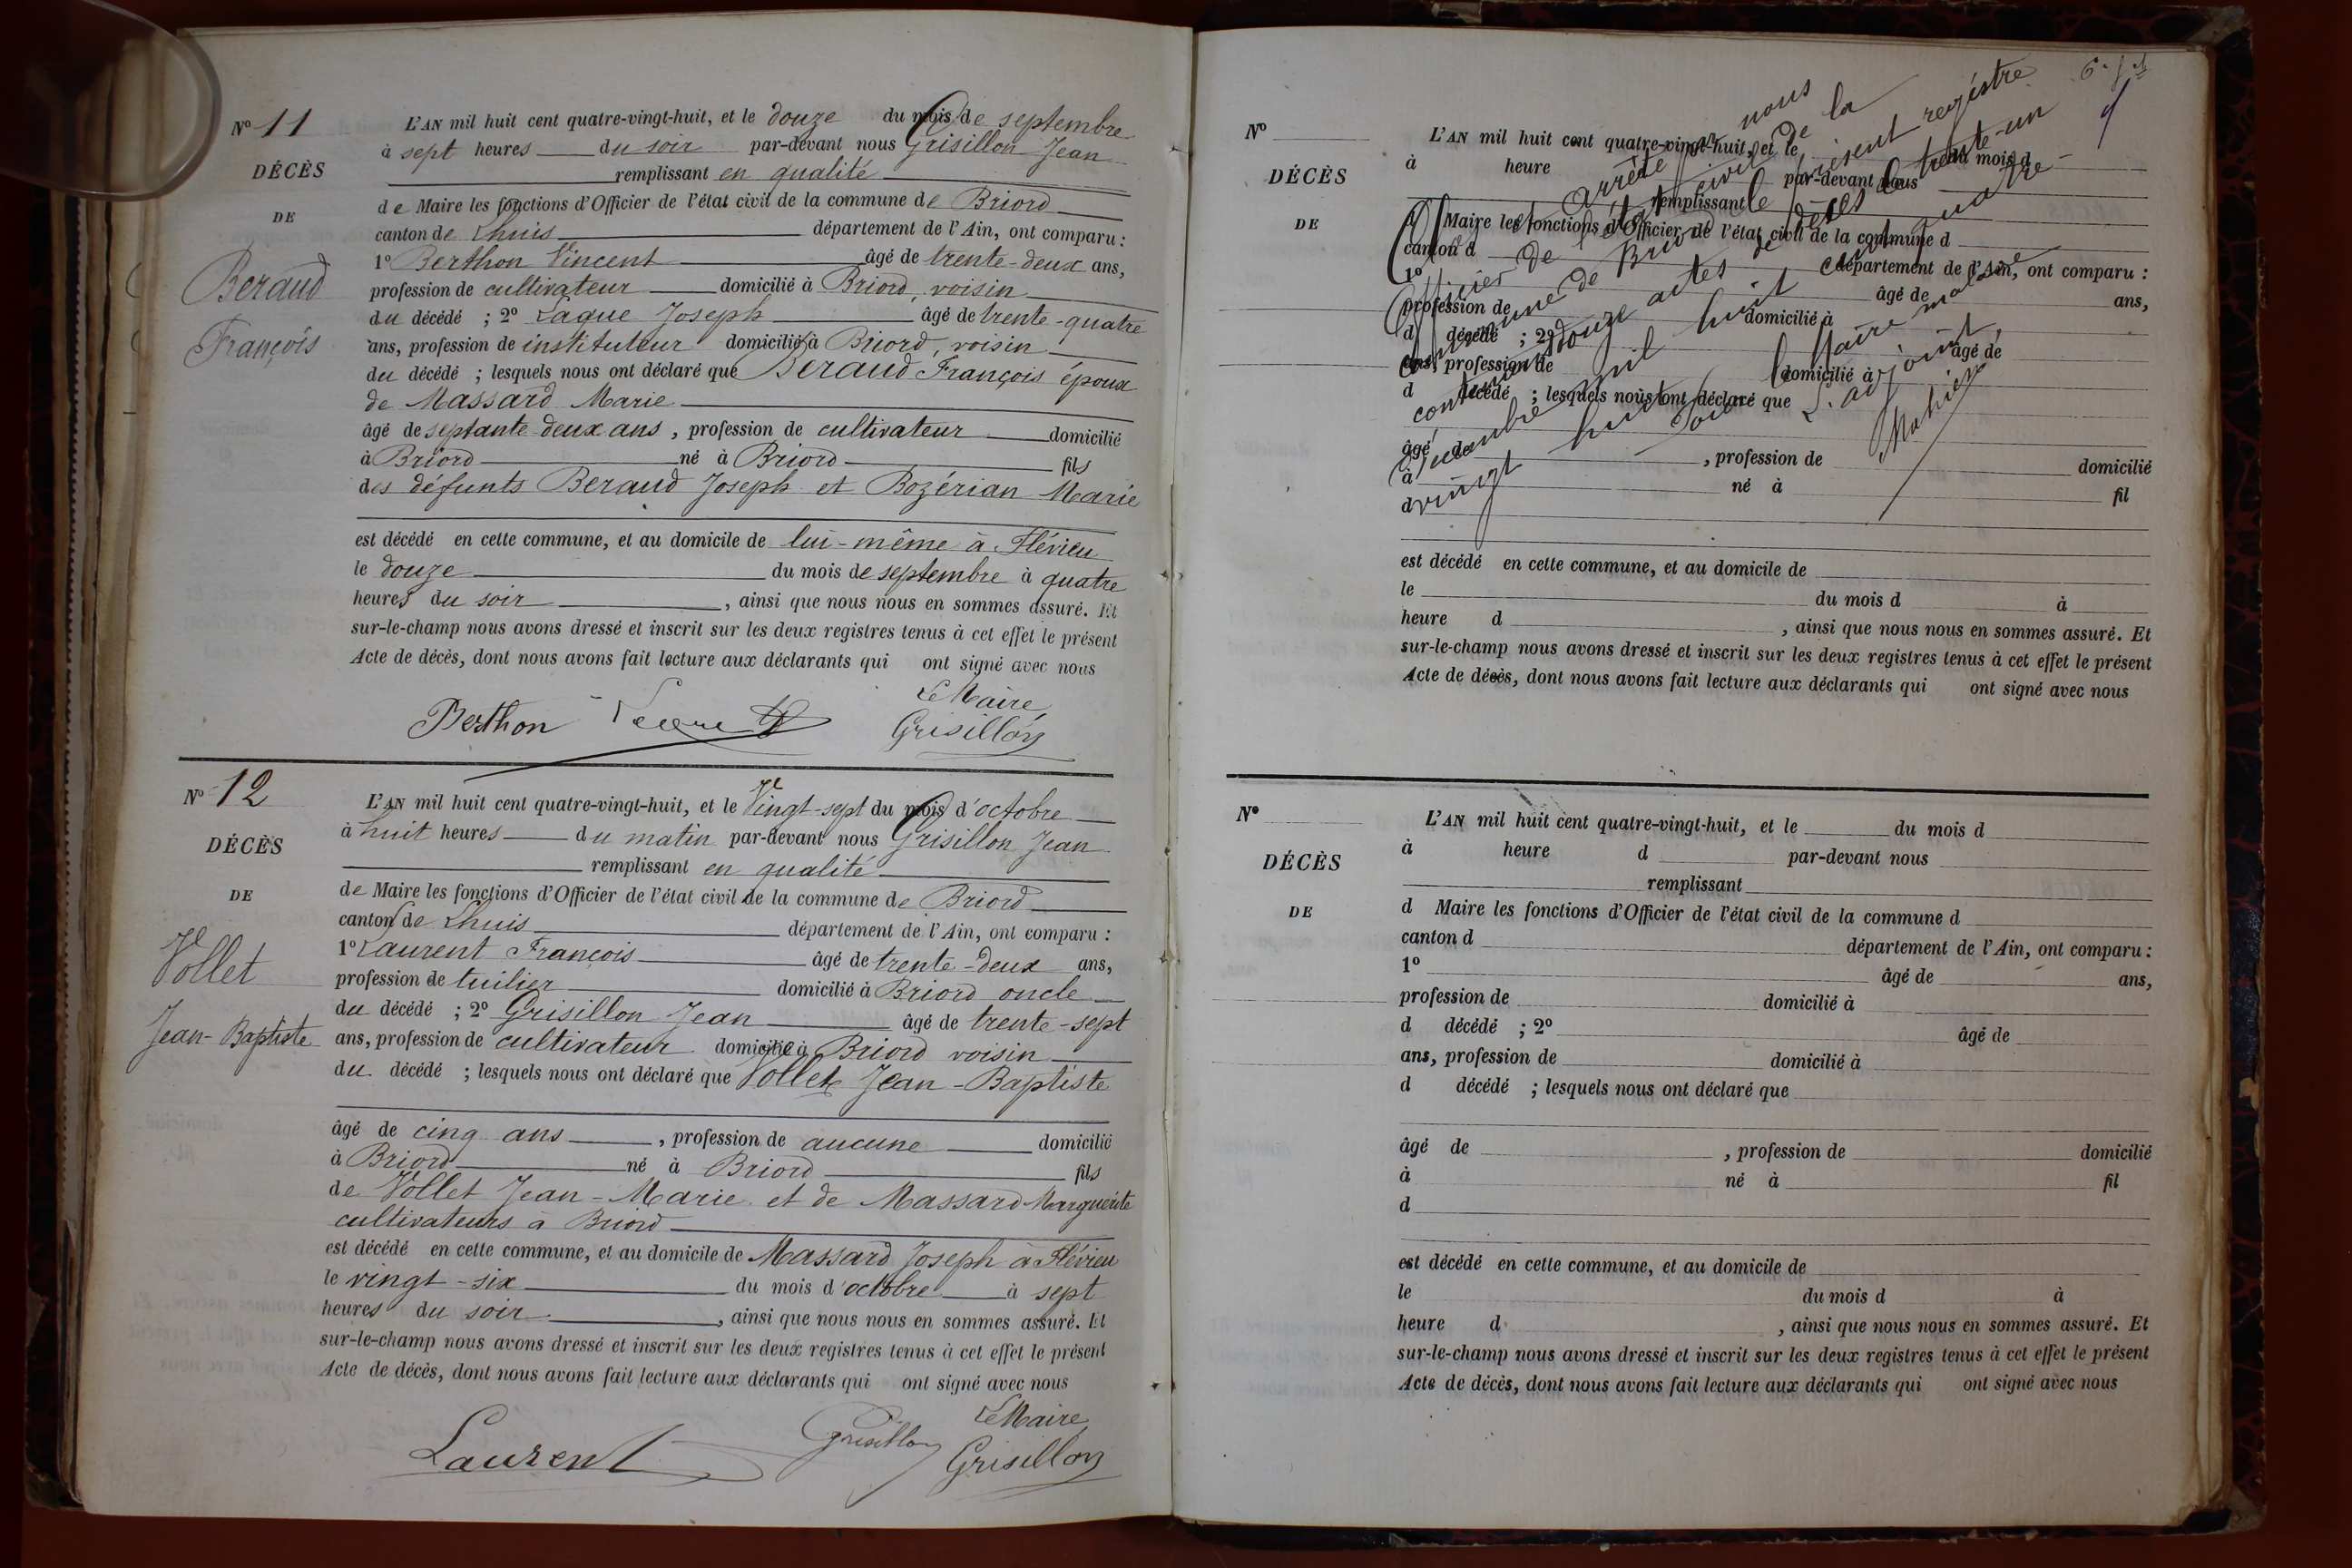 N° 11
DÉCÈS
DE
Beraud
François
L'AN mil huit cent quatre-vingt-huit, et le douze du mois de septembre
à sept heures du soir par-devant nous Grisillon Jean
remplissant en qualité
de Maire les fonctions d'Officier de l'état civil de la commune de Briord
canton de Lhuis département de l'Ain, ont comparu :
1° Berthon Vincent âgé de trente-deux ans,
profession de cultivateur domicilié à Briord, voisin
du décédé ; 2° Laque Joseph âgé de trente-quatre
ans, profession de instituteur domicilié à Briord, voisin
du décédé ; lesquels nous ont déclaré que Beraud François époux
de Massard Marie
âgé de septante-deux ans, profession de cultivateur domicilié
à Briord né à Briord fils
des défunts Beraud Joseph et Bozérian Marie
est décédé en cette commune, et au domicile de lui-même à Flévieu
le douze du mois de septembre à quatre
heures du soir, ainsi que nous nous en sommes assuré. Et
sur-le-champ nous avons dressé et inscrit sur les deux registres tenus à cet effet le présent
Acte de décès, dont nous avons fait lecture aux déclarants qui ont signé avec nous
Le Maire
Berthon Grisillon
N° 12
DÉCÈS
DE
Vollet
Jean-Baptiste
L'AN mil huit cent quatre-vingt-huit, et le Vingt-sept du mois d'octobre
à huit heures du matin par-devant nous Grisillon Jean
remplissant en qualité
de Maire les fonctions d'Officier de l'état civil de la commune de Briord
canton de Lhuis département de l'Ain, ont comparu :
1° Laurent François âgé de trente-deux ans,
profession de tuilier domicilié à Briord oncle
du décédé ; 2° Grisillon Jean âgé de trente-sept
ans, profession de cultivateur domicilié à Briord voisin
du décédé ; lesquels nous ont déclaré que Vollet Jean-Baptiste
âgé de cinq ans, profession de aucune domicilié
à Briord né à Briord fils
de Vollet Jean-Marie et de Massard Marguerite
cultivateurs à Briord
est décédé en cette commune, et au domicile de Massard Joseph à Flévieu
le vingt-six du mois d'octobre à sept
heures du soir, ainsi que nous nous en sommes assuré. Et
sur-le-champ nous avons dressé et inscrit sur les deux registres tenus à cet effet le présent
Acte de décès, dont nous avons fait lecture aux déclarants qui ont signé avec nous
Le Maire
Laurent Grisillon Grisillon
N°
DÉCÈS
DE
L'AN mil huit cent quatre-vingt-huit, et le du mois d
à heure par-devant nous
remplissant
d Maire les fonctions d'Officier de l'état civil de la commune d
canton d département de l'Ain, ont comparu :
1° âgé de ans,
profession de domicilié à
d décédé ; 2° âgé de
ans, profession de domicilié à
d décédé ; lesquels nous ont déclaré que
âgé de , profession de domicilié
à né à fil
d
arrêté par nous
Officier de l'état civil de la
commune de Briord le présent registre
contenant douze actes de décès le trente-un
décembre mil huit cent quatre-
vingt huit
Pour le Maire malade
L'adjoint,
est décédé en cette commune, et au domicile de
le du mois d à
heure d , ainsi que nous nous en sommes assuré. Et
sur-le-champ nous avons dressé et inscrit sur les deux registres tenus à cet effet le présent
Acte de décès, dont nous avons fait lecture aux déclarants qui ont signé avec nous
N°
DÉCÈS
DE
L'AN mil huit cent quatre-vingt-huit, et le du mois d
à heure d par-devant nous
remplissant
d Maire les fonctions d'Officier de l'état civil de la commune d
canton d département de l'Ain, ont comparu :
1° âgé de ans,
profession de domicilié à
d décédé ; 2° âgé de
ans, profession de domicilié à
d décédé ; lesquels nous ont déclaré que
âgé de , profession de domicilié
à né à fil
d
est décédé en cette commune, et au domicile de
le du mois d à
heure d , ainsi que nous nous en sommes assuré. Et
sur-le-champ nous avons dressé et inscrit sur les deux registres tenus à cet effet le présent
Acte de décès, dont nous avons fait lecture aux déclarants qui ont signé avec nous